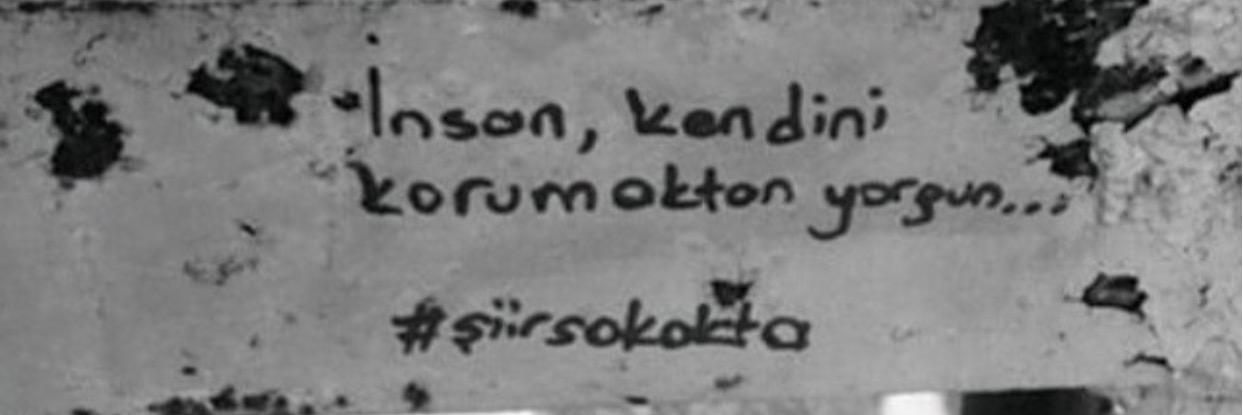 İnsan, kendini
korumaktan yorgun...
#şiirsokakta